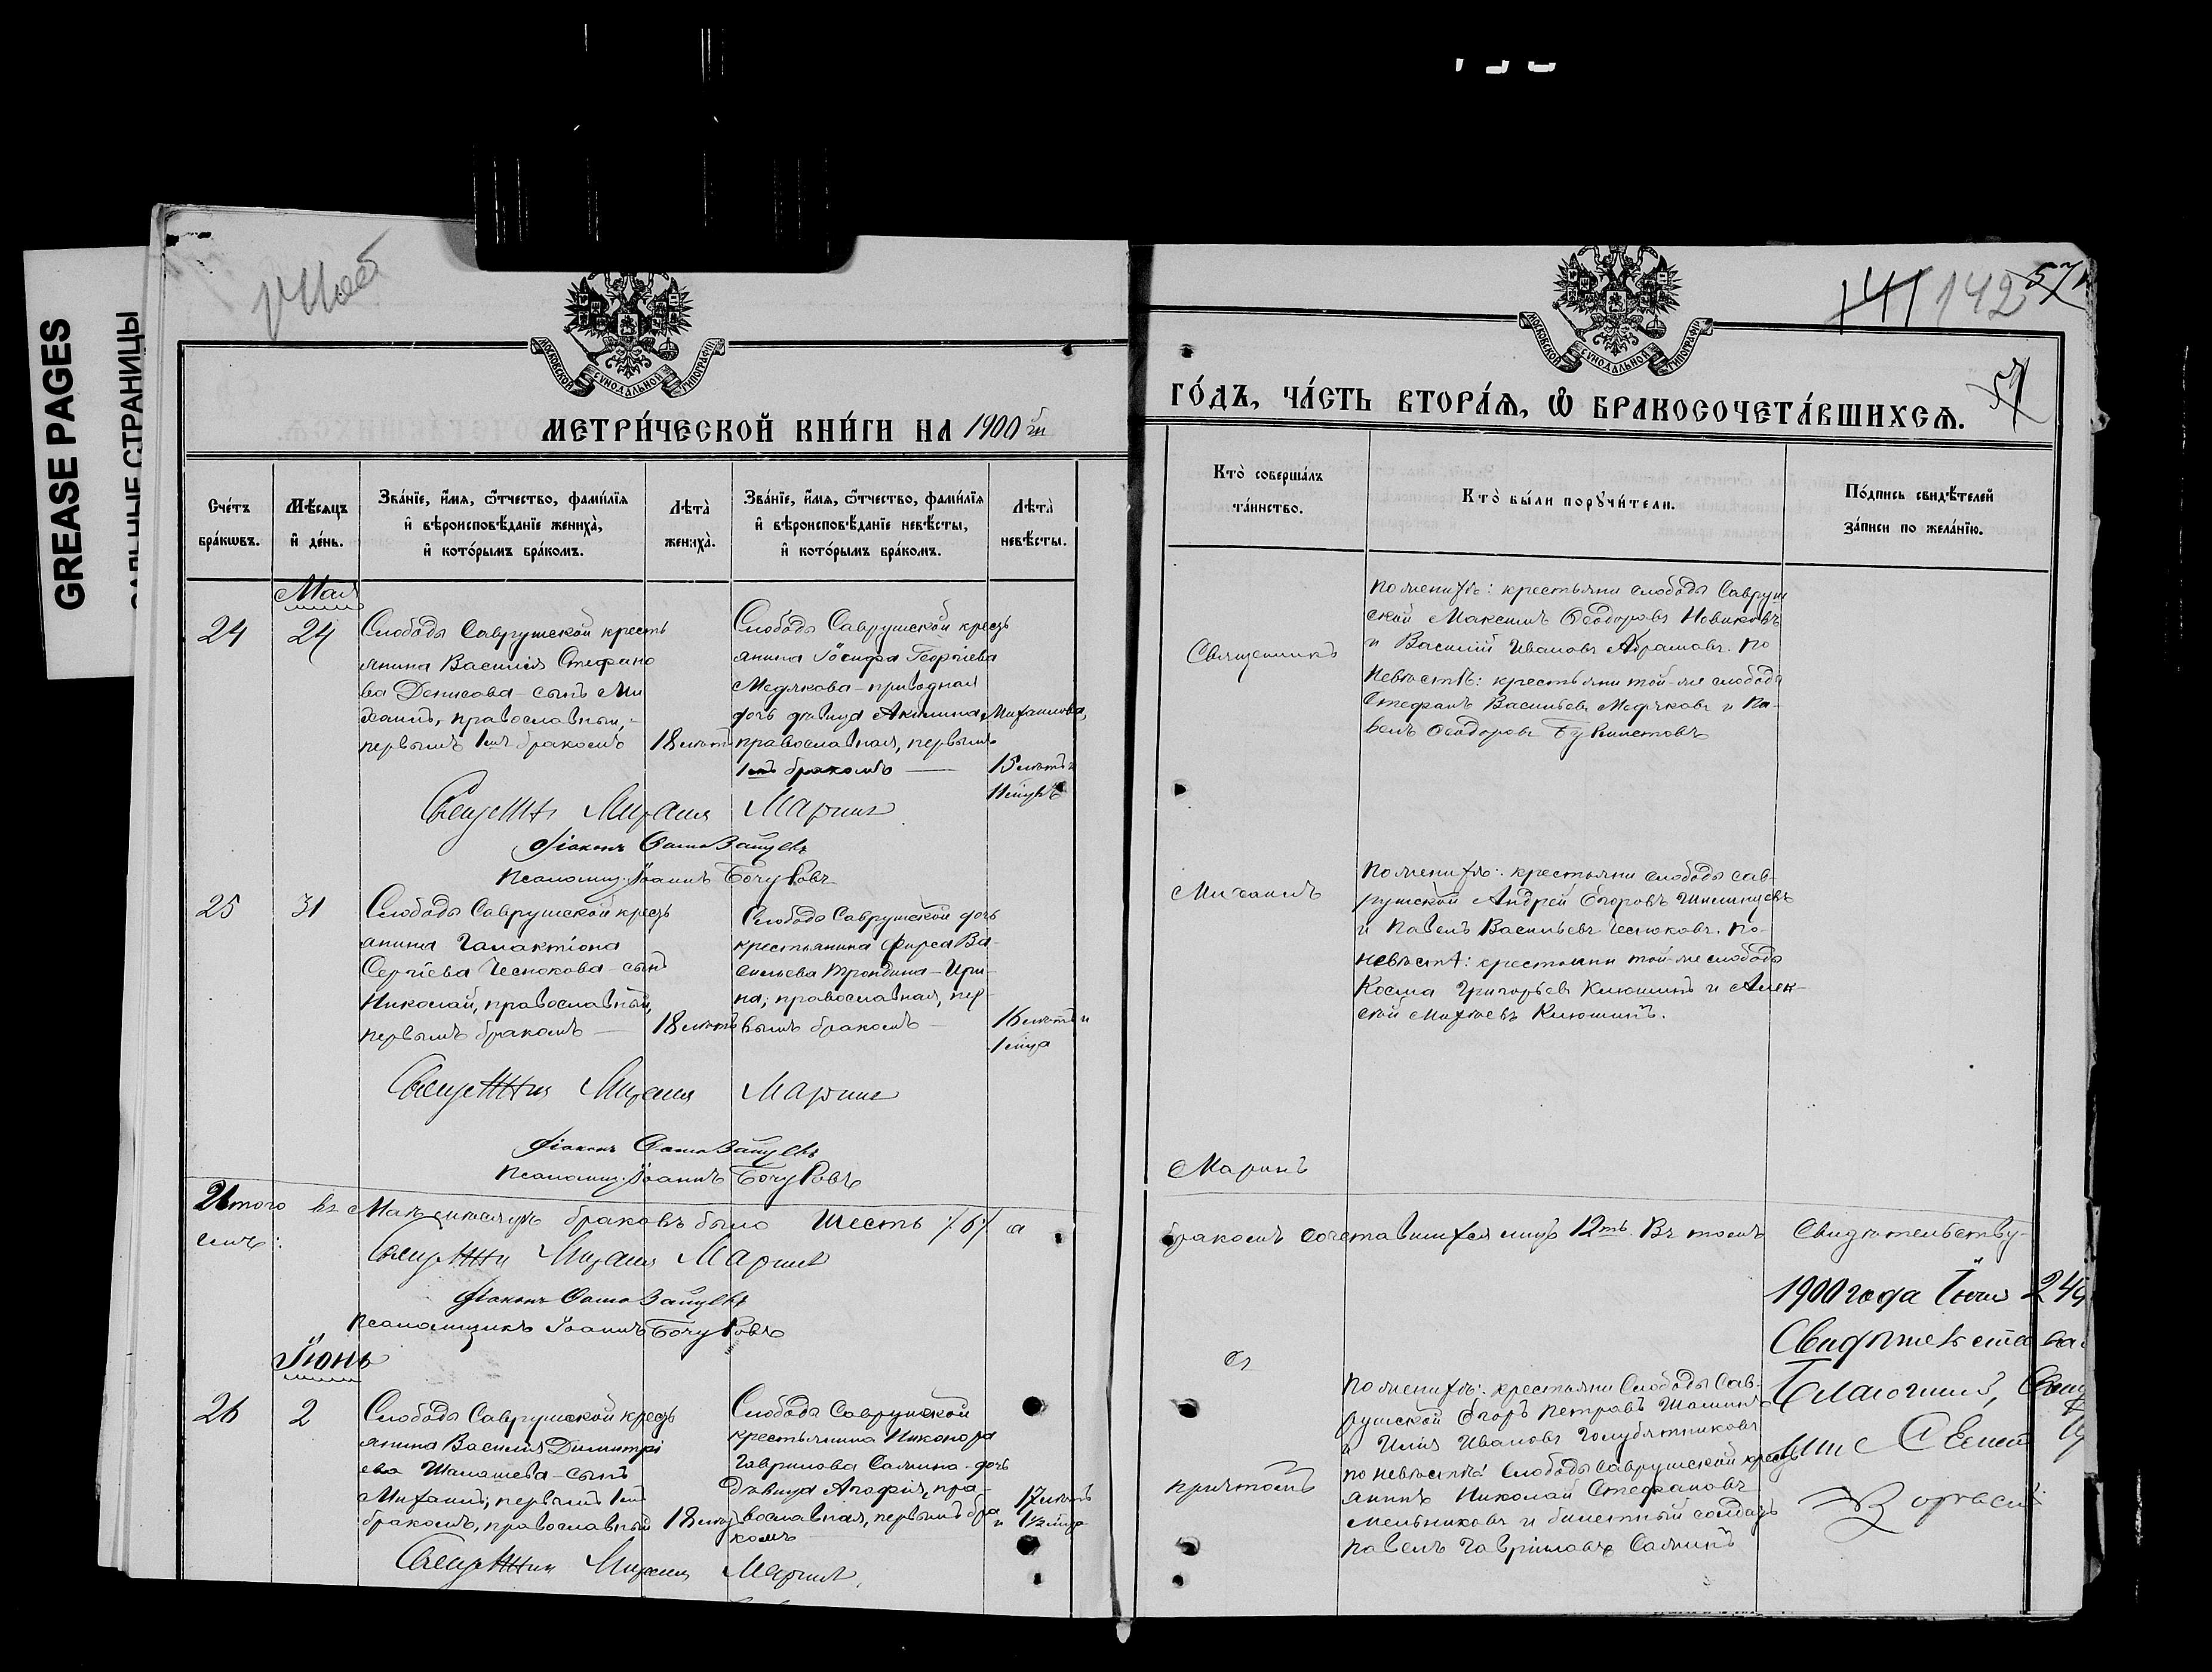 GREASE PAGES
САЛЬНЫЕ СТРАНИЦЫ
МОСКОВСКОЙ СѴНОДАЛЬНОЙ ТИПОГРАФІИ
МЕТРИ́ЧЕСКОЙ КНИ́ГИ НА 1900 й
Сче́тъ бра́кѡвъ.
Мѣ́сяцъ и҆ де́нь.
Зва́нїе, и҆́мѧ, ѻ҆́тчество, фами́лїѧ и҆ вѣроисповѣ́данїе жениха̀, и҆ кото́рымъ бра́комъ.
Лѣта̀ жениха̀.
Зва́нїе, и҆́мѧ, ѻ҆́тчество, фами́лїѧ и҆ вѣроисповѣ́данїе невѣ́сты, и҆ кото́рымъ бра́комъ.
Лѣта̀ невѣ́сты.
Мая
24
24
Слободы Саврушской кресть
янина Василія Стефано
ва Денисова - сынъ Ми
хаилъ, православный,
первымъ 1мъ бракомъ
18 лѣтъ
Слободы Саврушской кресть
янина Іосифа Георгіева
Медякова - приводная
дочь дѣвица Акилина Михаилова,
православная, первымъ
1мъ бракомъ
15 лѣтъ и
11 мѣс.
Священникъ Михаилъ Маринъ
Діаконъ Зайцевъ
Псаломщ. Іоаннъ Бочковъ
25
31
Слободы Саврушской кресть
янина Галактіона
Сергіева Чеснокова - сынъ
Николай, православный,
первымъ бракомъ
18 лѣтъ
Слободы Саврушской дочь
крестьянина Фирса Ва-
сильева Трондина - Ири-
на; православная, пер-
вымъ бракомъ
16 лѣтъ и
1 мѣсца
Священникъ Михаилъ Маринъ
Діаконъ Зайцевъ
Псаломщ. Іоаннъ Бочковъ
Итого въ Маѣ мѣсяцѣ браковъ было шесть /6/ а
емъ:
Священникъ Михаилъ Маринъ
Діаконъ Зайцевъ
Псаломщикъ Іоаннъ Бочковъ
Іюнь
26
2
Слободы Саврушской кресть
янина Василія Димитрі
ева Шалашева - сынъ
Михаилъ; первымъ 1мъ
бракомъ, православный
18 лѣтъ
Слободы Саврушской
крестьянина Никонора
Гаврилова Салмина - дочь
дѣвица Агафія, пра-
вославная, первымъ бра
комъ
17 лѣтъ
и
Священникъ Михаилъ Маринъ
141 142 57
57
МОСКОВСКОЙ СѴНОДАЛЬНОЙ ТИПОГРАФІИ
ГО́ДЪ, ЧА́СТЬ ВТОРА́Ѧ, Ѽ БРАКОСОЧЕТА́ВШИХСѦ.
Кто̀ соверша́лъ та́инство.
Кто̀ бы́ли порꙋчи́тели.
По́дпись свидѣ́телей за́писи по жела́нїю.
Священникъ
По женихѣ: крестьяни слободы Савруш
ской Максимъ Ѳеодоровъ Новиковъ
и Василій Ивановъ Абрамовъ. По
Невѣстѣ: крестьяни той-же слободы
Стефанъ Васильевъ Медяковъ и Па-
велъ Ѳеодоровъ
Михаилъ
По женихѣ: крестьяни слободы Сав-
рушской Андрей Егоровъ
и Павелъ Васильевъ Чесноковъ. По-
невѣстѣ: крестьяни той-же слободы
Косма Григорьевъ Клюшинъ и Алек-
сѣй Клюшинъ.
Маринъ
бракомъ сочетавшихся лицъ 12ть. Въ томъ свидѣтельству-
1900 года Іюля 24
Свидѣтельствова
Благочин,
съ
причтомъ
По женихѣ: крестьяни Слободы Сав-
рушской Егоръ Петровъ
и Илія Ивановъ Голубятниковъ
по невѣстѣ: Слободы Саврушской кресть
янинъ Николай Стефановъ
Мельниковъ и билетный солдатъ
Павелъ Гавриловъ Салминъ